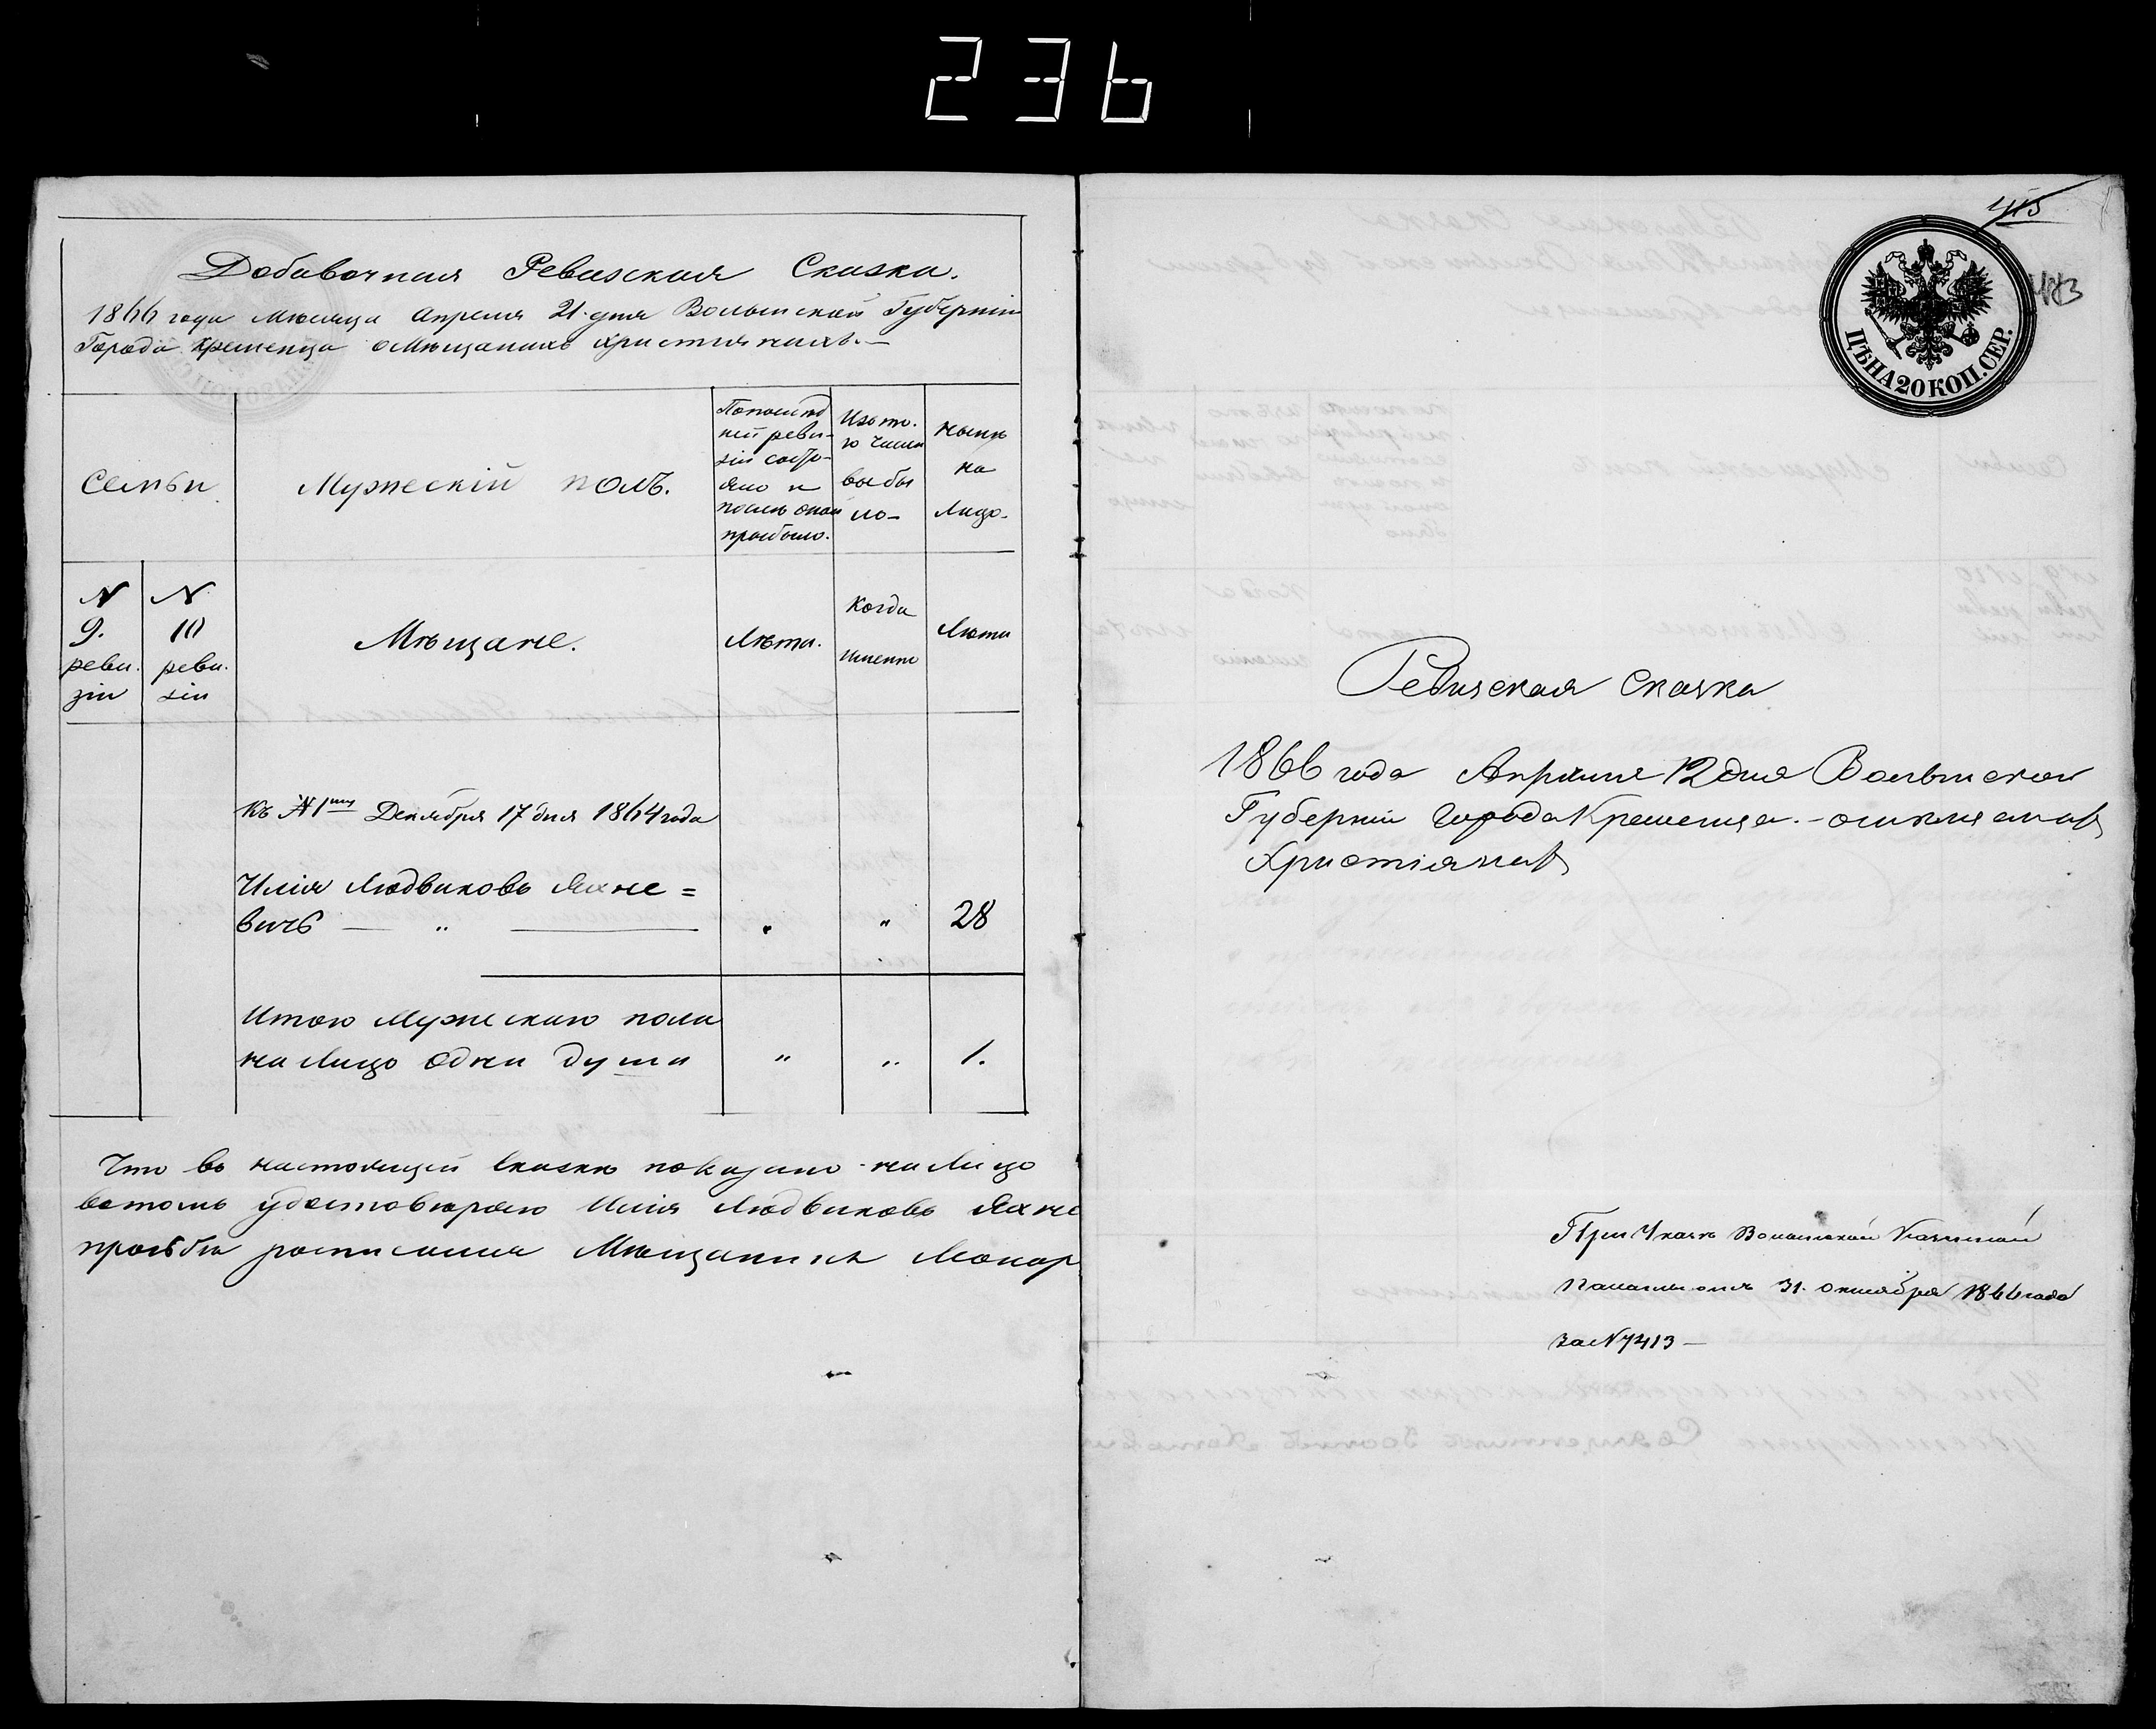 236
Добавочная Ревизская Сказка.
1866 года Месяца Апреля 21 дня Волынской Губерніи
Города Кременца о Мѣщанинѣ християнинѣ.—
Семьи
Мужескій полъ.
По послѣд
ней реви-
зіи состо-
яло и
послѣ оной
прибыло.
Изъ то-
го числа
выбы
ло-
нынѣ
на
Лицо-
N
9.
реви.
зіи
N
10
реви.
зіи
Мѣщане.
Лѣта.
Когда
именно
Лѣта
Къ № 1му Декабря 17 дня 1864 года
Илія Людвиковъ Яхне=
вичъ — „ — „ „ 28
Итого Мужескаго пола
на Лицо одна душа „ „ 1.
Что въ настоящей Сказкѣ показано на Лицо
вотомъ удостовѣряю Илія Людвиковъ Яхне
прозьбы росписался Мѣщанинъ
415
483
ЦѢНА 20 КОП. СЕР.
Ревизская Сказка
1866 года Апрѣля 12 дня Волынской
Губерніи города Кременца.- о мѣщанах
Христіянах
При Указѣ Волынской Казенной
Палаты отъ 31. октября 1866 года
за N 7413 —